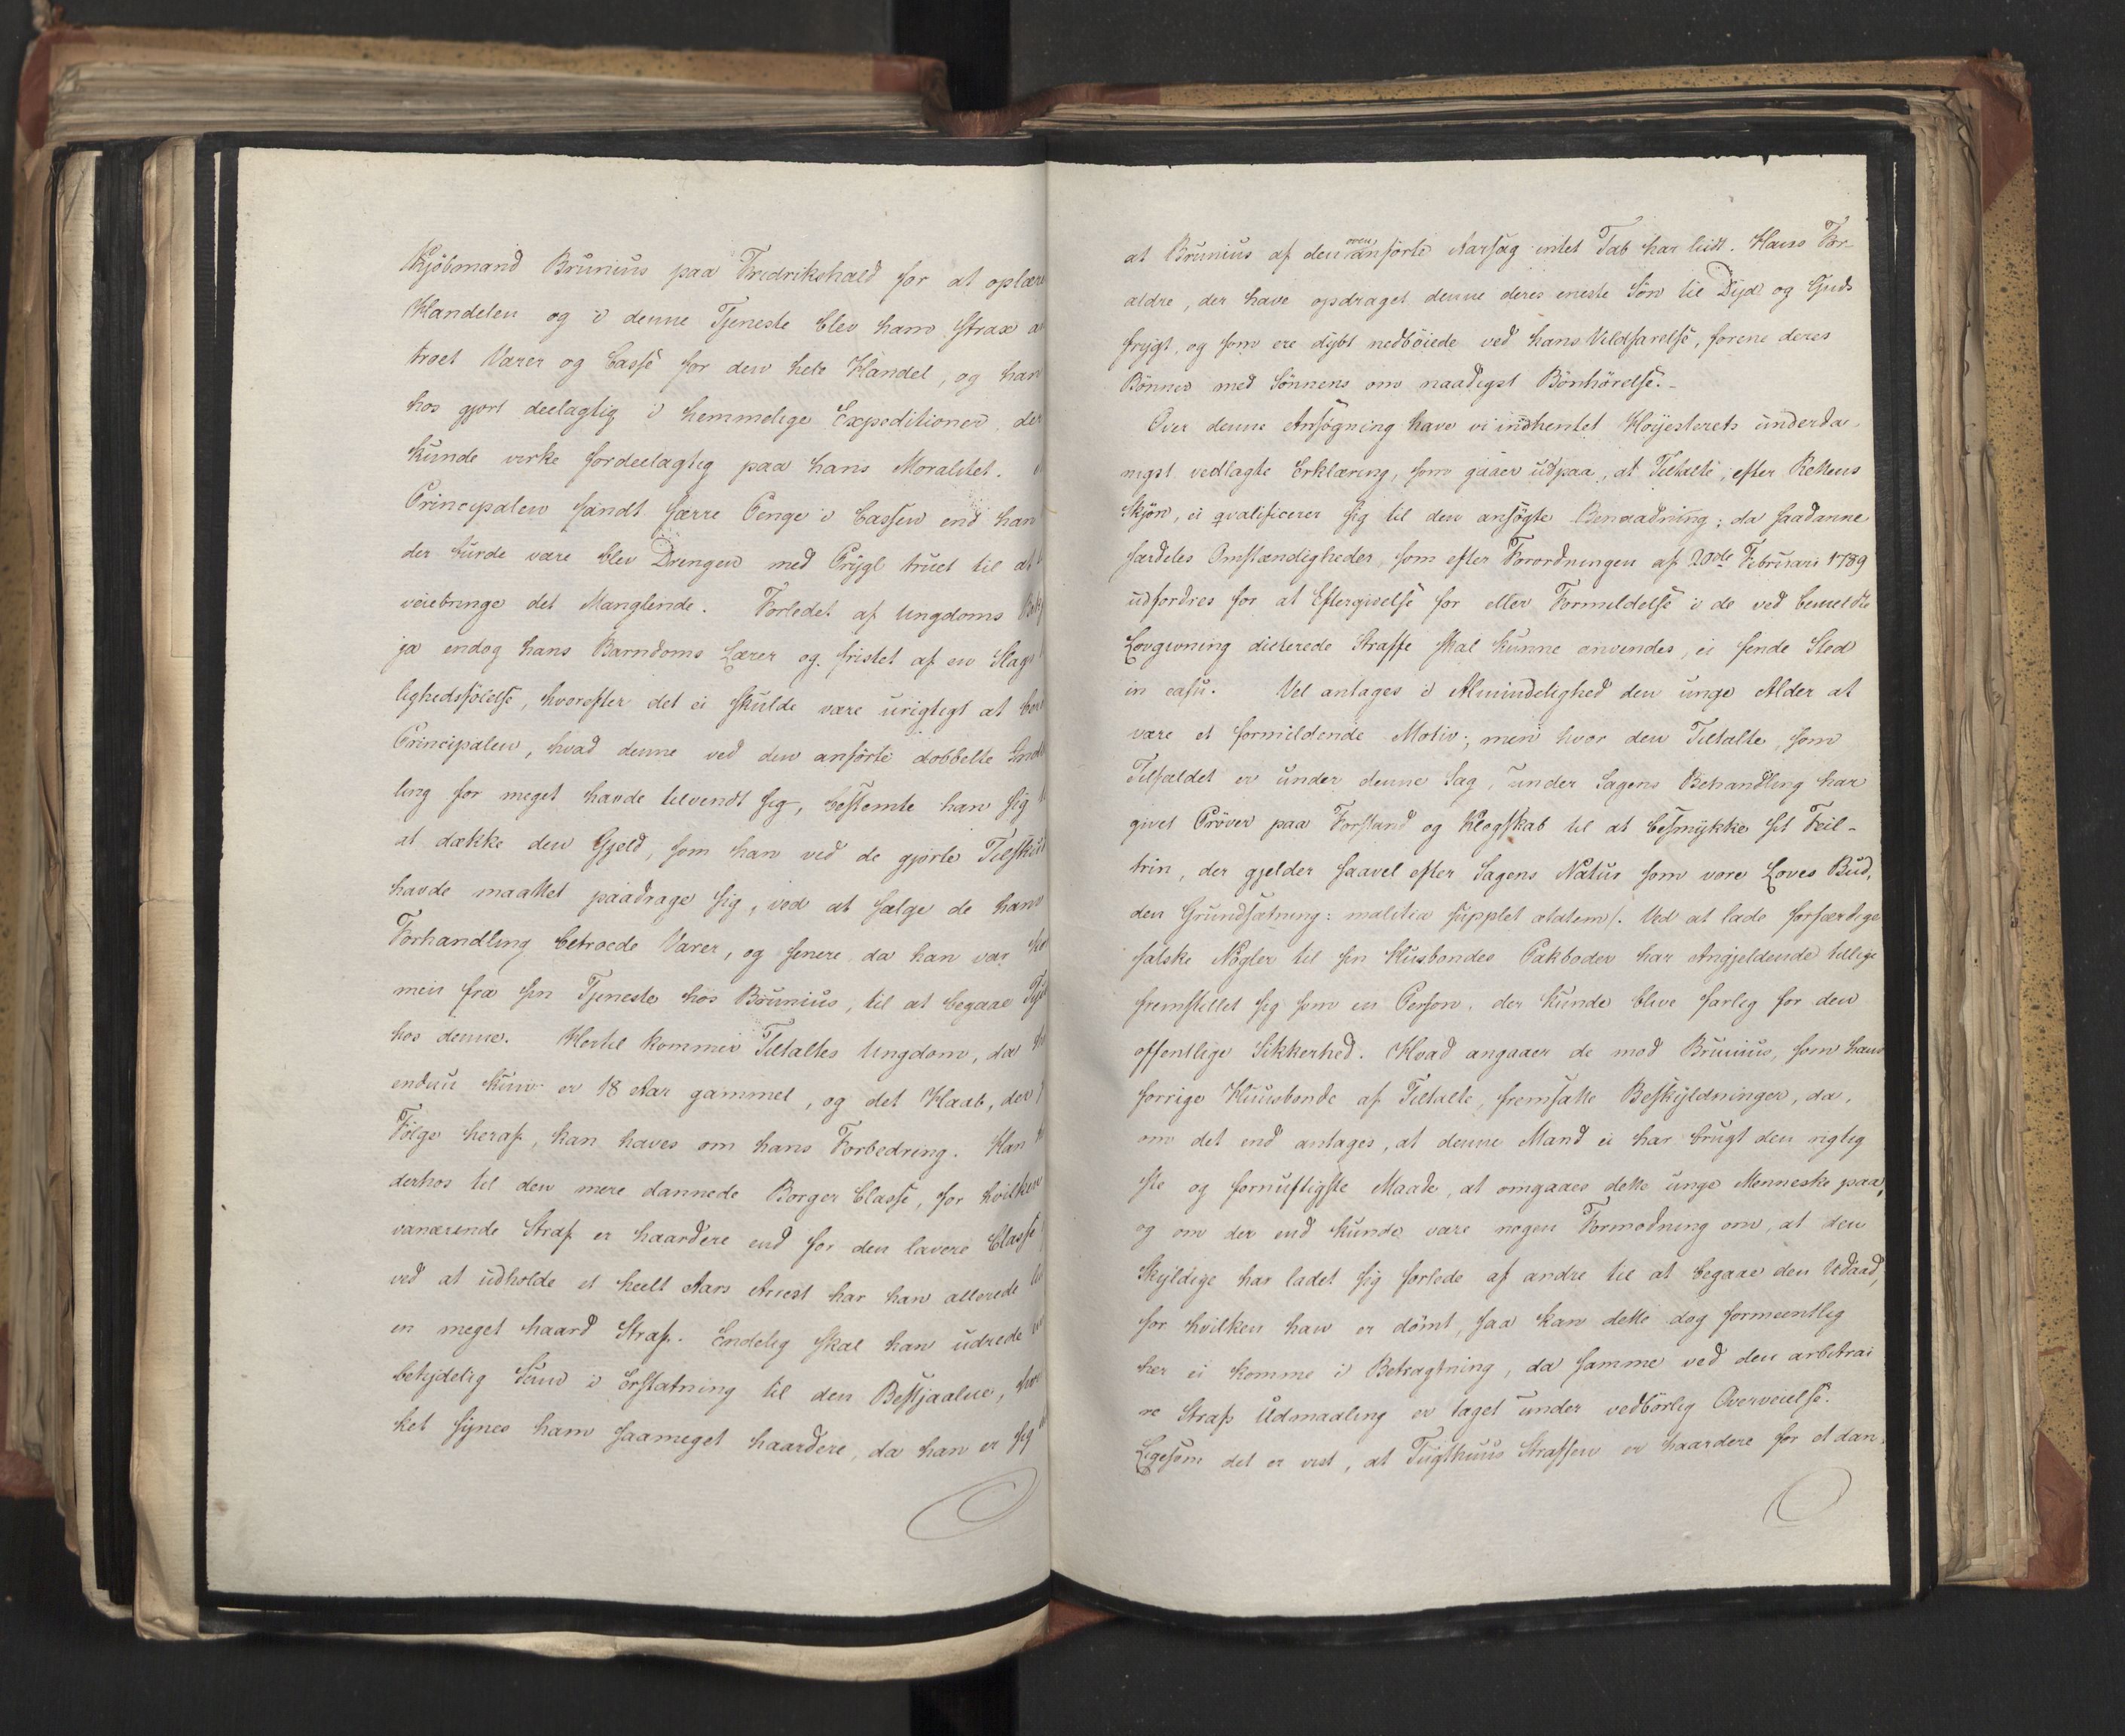 Kjöbmand Brunius paa Fredrikshald for at oplære
Handelen og i denne Tjeneste blev ham strax
troet Varer og Casse for den hele Handel, og han
hos gjort deelagtig i hemmelige Expeditioner, der
kunde virke fordeelagtig paa hans Moralitet.
Principalen fandt færre Penge i Cassen end han
der burde være blev Drengen med Prygl truet til at
veiebringe det Manglende. Forledet af Ungdoms
ja endog hans Barndoms Lærer og fristet af en Slags
lighedsfölelse, hvorefter det ei skulde være urigtigt at
Principalen, hvad denne ved den anförte dobbelte
ling for meget havde tilvendt sig, bestemte han sig
at dække den Gjeld, som han ved de gjorte Tilskud
havde maattet paadrage sig, ved at sælge de hans
Forhandling betroede Varer, og senere da han var
men fra sin Tjeneste hos Brunius, til at begaae
hos denne. Hertil kommer Tiltaltes Ungdom, da
endnu kun er 18 Aar gammel, og det Haab, der
Fölge heraf, kan haves om hans Forbedring. Han
derhos til den mere dannede Borger Classe, for hvilken
vanærende Straf er haardere end for den lavere Classe
ved at udholde et heelt Aars Arrest har han allerede
en meget haard Straf. Endelig skal han udrede
betydelig Sum i Erstatning til den Bestjaalne,
ket synes ham saameget haardere, da han er sig
at Brunius af den oven anförte Aarsag intet Tab har lidt. Hans For-
ældre, der have opdraget denne deres eneste Sön til Dyd og Guds
frygt, og som ere dybt nedböiede ved hans Vildfarelse, forene deres
Bönner med Sönnens om naadigst Bönhörelse.-
Over denne Ansögning have vi indhentet Höiesterets underda-
nigst vedlagte Erklæring, som gaaer ud paa, at Tiltalte, efter Rettens
Skjön, ei qvalificerer sig til den ansögte Benaadning; da saadanne
særdeles Omstændigheder, som efter Forordningen af 20de Februari 1789
udfordres for at Eftergivelse for eller Formildelse i de ved bemeldte
Lovgivning dicterede Straffe skal kunne anvendes, ei finde Sted
in casu. Vel antages i Almindelighed den unge Alder at
være et formildende Motiv; men hvor den Tiltalte, som
Tilfældet er under denne Sag, under Sagens Behandling har
givet Pröver paa Forstand og Klogskab til at besmykke sit Feil-
trin, der gjelder saavel efter Sagens Natur som vore Loves Bud,
den Grundsætning: malitia supplet ætatem/. Ved at lade forfærdige
falske Nögler til sin Husbondes Pakboder har Angjeldende tillige
fremstillet sig som en Person, der kunde blive farlig for den
offentlige Sikkerhed. Hvad angaaer de mod Brunius, som hans
forrige Huusbonde af Tiltalte, fremsatte Beskyldninger, da,
om det end antages, at denne Mand ei har brugt den rigtig
ste og fornuftigste Maade, at omgaaes dette unge Menneske paa,
og om der end kunde være nogen Formodning om, at den
Skyldige har ladet sig forlede af andre til at begaae den Udaad,
for hvilken han er dömt, saa kan dette dog formeentlig
her ei komme i Betragtning, da samme ved den arbitrai
re Strafs Udmaaling er taget under vedbörlig Overveielse.
Ligesom det er vist, at Tugthuus Straffen er haardere for et dan-